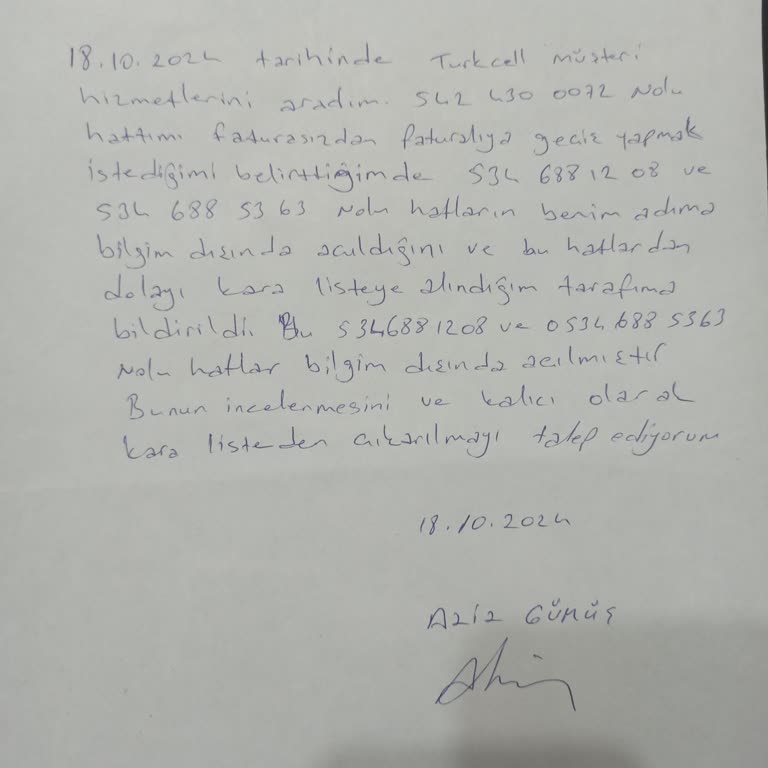 18.10.2024 tarihinde Turkcell müşteri
hizmetlerini aradım. 542 430 0072 Nolu
hattımı faturasızdan faturalıya geçiş yapmak
istediğimi belirttiğimde 534 688 12 08 ve
534 688 53 63 Nolu hatların benim adıma
bilgim dışında açıldığını ve bu hatlardan
dolayı kara listeye alındığım tarafıma
bildirildi. Bu 5346881208 ve 0534 688 5363
Nolu hatlar bilgim dışında açılmıştır
Bunun incelenmesini ve kalıcı olarak
kara listeden çıkarılmayı talep ediyorum
18.10.2024
Aziz GÜMÜŞ